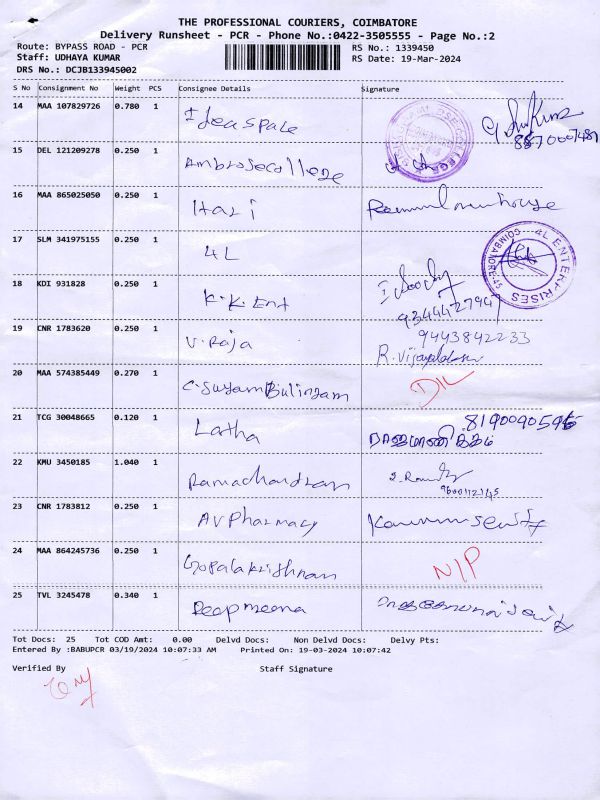 THE PROFESSIONAL COURIERS, COIMBATORE
Delivery Runsheet - PCR - Phone No.:0422-3505555 - Page No.:2
Route: BYPASS ROAD - PCR RS No.: 1339450
Staff: UDHAYA KUMAR RS Date: 19-Mar-2024
DRS No.: DCJB133945002
S No Consignment No Weight PCS Consignee Details Signature
14 MAA 107829726 0.780 1 Ideaspace
8870007487
15 DEL 121209278 0.250 1 Ambrosecollege
16 MAA 865025050 0.250 1 Hari
17 SLM 341975155 0.250 1 4L
4L ENTERPRISES COIMBATORE-45
18 KDI 931828 0.250 1 K.K.Ent
9344427947
19 CNR 1783620 0.250 1 V.Raja 9443842233
20 MAA 574385449 0.270 1 D/L
21 TCG 30048665 0.120 1 Latha
22 KMU 3450185 1.040 1 Ramachandran
23 CNR 1783812 0.250 1 AVPharmacy
24 MAA 864245736 0.250 1 Gopalakrishnan N/P
25 TVL 3245478 0.340 1 Deepmeena
Tot Docs: 25 Tot COD Amt: 0.00 Delvd Docs: Non Delvd Docs: Delvy Pts:
Entered By :BABUPCR 03/19/2024 10:07:33 AM Printed On: 19-03-2024 10:07:42
Verified By Staff Signature